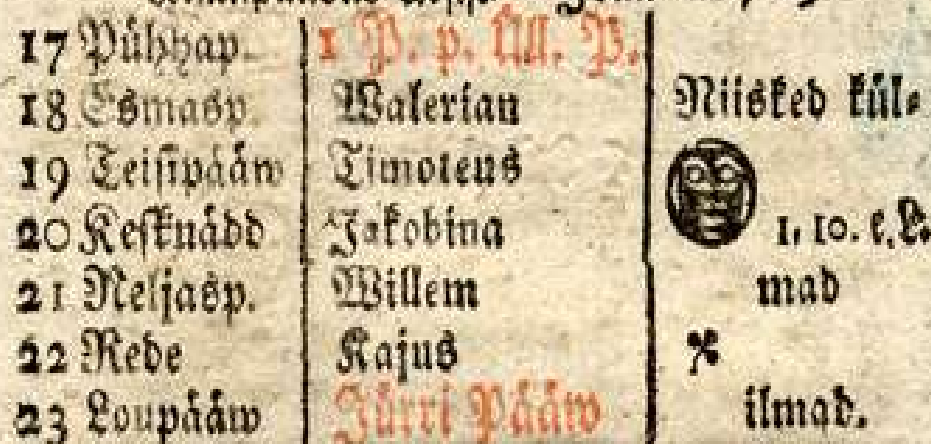 17 Pühhap. 1 P. p. üll. P.
18 Esmasp. Walerian Niisked kül-
19 Teisipääw Timoteus
20 Kesknädd Jakobina 1, 10. e. L.
21 Neljasp. Willem mad
22 Rede Kajus
23 Loupääw Jürri Pääw ilmad.